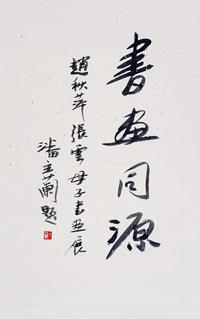 書画同源
趙秋萍張雲母子書画展
潘主蘭題